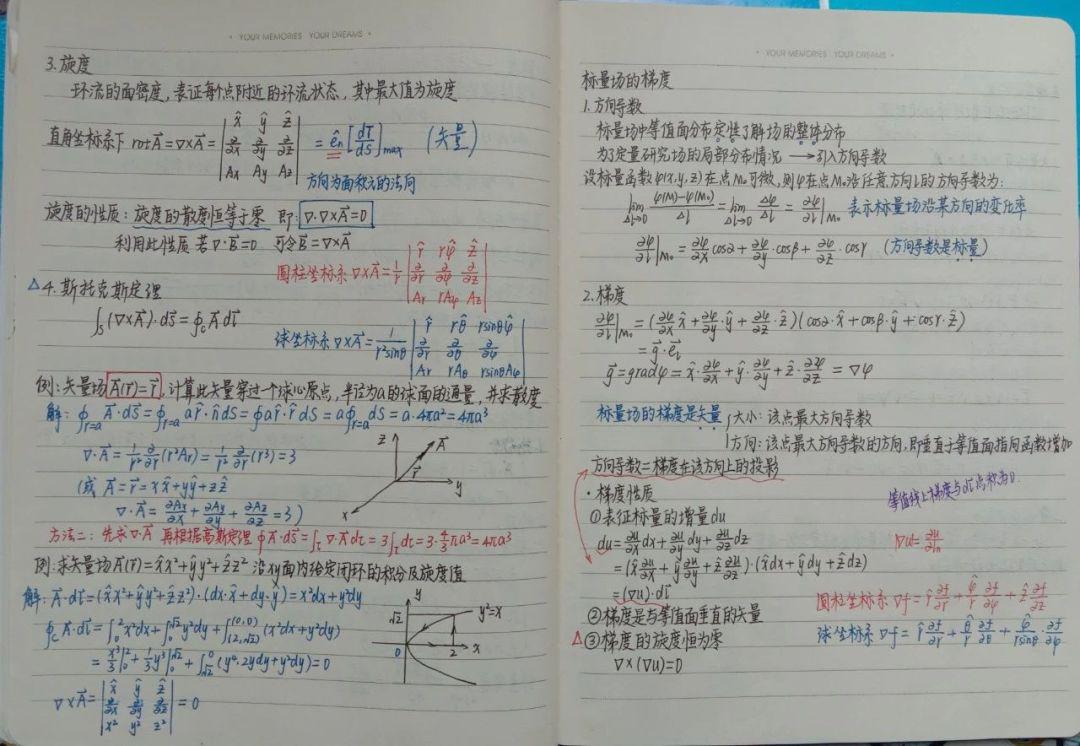 · YOUR MEMORIES YOUR DREAMS ·
3.旋度
环流的面密度,表证每个点附近的环流状态,其中最大值为旋度
直角坐标系下 rotA⃗=∇×A⃗= |x̂ ŷ ẑ; ∂/∂x ∂/∂y ∂/∂z; Ax Ay Az| = ên[dΓ/dS]max (矢量)
方向为面积元的法向
旋度的性质:旋度的散度恒等于零 即:∇·∇×A⃗=0
利用此性质 若∇·B⃗=0 可令B⃗=∇×A⃗
圆柱坐标系 ∇×A⃗=1/r |r̂ rφ̂ ẑ; ∂/∂r ∂/∂φ ∂/∂z; Ar rAφ Az|
△4.斯托克斯定理
∫s(∇×A⃗)·dS⃗=∮c A⃗·dl⃗
球坐标系 ∇×A⃗=1/r²sinθ |r̂ rθ̂ rsinθφ̂; ∂/∂r ∂/∂θ ∂/∂φ; Ar rAθ rsinθAφ|
例:矢量场A⃗(r)=r⃗,计算此矢量穿过一个球心原点,半径为a的球面的通量,并求散度
解:∮r=a A⃗·dS⃗=∮r=a ar̂·n̂dS=∮ar̂·r̂dS=a∮r=a dS=a·4πa²=4πa³
∇·A⃗=1/r² ∂/∂r(r²Ar)=1/r² ∂/∂r(r³)=3
(或 A⃗=r⃗=xx̂+yŷ+zẑ
∇·A⃗=∂Ax/∂x+∂Ay/∂y+∂Az/∂z=3)
z A⃗ r⃗ y x
方法二:先求∇·A⃗ 再根据高斯定理 ∮A⃗·dS⃗=∫τ∇·A⃗dτ=3∫τdτ=3·4/3πa³=4πa³
例:求矢量场A⃗(r)=x̂x²+ŷy²+ẑz² 沿xy面内给定闭环的积分及旋度值
解:A⃗·dl⃗=(x̂x²+ŷy²+ẑz²)·(dx·x̂+dy·ŷ)=x²dx+y²dy
∮c A⃗·dl⃗=∫₀²x²dx+∫₀^√2 y²dy+∫(2,√2)^(0,0)(x²dx+y²dy)
=x³/3|₀²+1/3y³|₀^√2+∫√2^0(y⁴·2ydy+y²dy)=0
y √2 y²=x 0 2 x
∇×A⃗=|x̂ ŷ ẑ; ∂/∂x ∂/∂y ∂/∂z; x² y² z²|=0
· YOUR MEMORIES YOUR DREAMS ·
标量场的梯度
1.方向导数
标量场中等值面分布定性了解场的整体分布
为了定量研究场的局部分布情况 ⟶引入方向导数
设标量函数φ(x,y,z)在点M₀可微,则φ在点M₀沿任意方向l的方向导数为:
lim Δl→0 φ(M)-φ(M₀)/Δl = lim Δl→0 Δφ/Δl = ∂φ/∂l|M₀ 表示标量场沿某方向的变化率
∂φ/∂l|M₀=∂φ/∂x cosα+∂φ/∂y·cosβ+∂φ/∂z·cosγ (方向导数是标量)
2.梯度
∂φ/∂l|M₀=(∂φ/∂x x̂+∂φ/∂y·ŷ+∂φ/∂z·ẑ)(cosα·x̂+cosβ·ŷ+cosγ·ẑ)
=g⃗·e⃗l
g⃗=gradφ=x̂·∂φ/∂x+ŷ·∂φ/∂y+ẑ·∂φ/∂z=∇φ
标量场的梯度是矢量 {大小:该点最大方向导数
方向:该点最大方向导数的方向,即垂直于等值面指向函数增加
方向导数=梯度在该方向上的投影
·梯度性质
等值线上梯度与dl⃗点积为0.
①表征标量的增量du
du=∂u/∂x dx+∂u/∂y dy+∂u/∂z dz ∇u=∂u/∂n
=(x̂∂u/∂x+ŷ∂u/∂y+ẑ∂u/∂z)·(x̂dx+ŷdy+ẑdz)
=(∇u)·dl⃗
圆柱坐标系 ∇f=r̂∂f/∂r+φ̂/r ∂f/∂φ+ẑ∂f/∂z
②梯度是与等值面垂直的矢量
球坐标系 ∇f=r̂∂f/∂r+θ̂/r ∂f/∂θ+φ̂/rsinθ·∂f/∂φ
△③梯度的旋度恒为零
∇×(∇u)=0